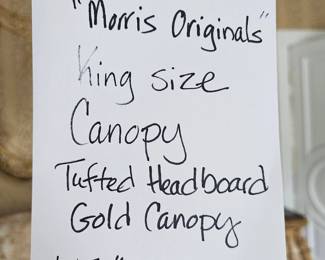 "Morris Originals"
King size
Canopy
Tufted Headboard
Gold Canopy